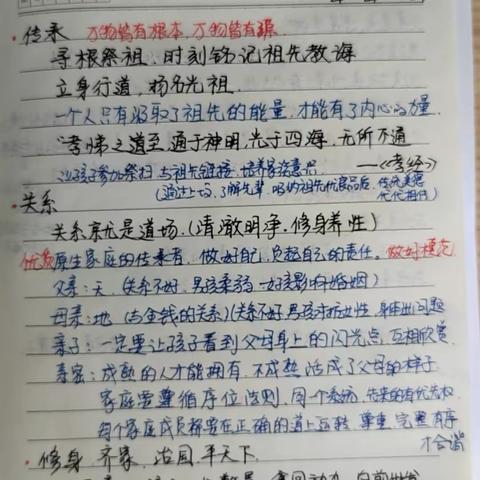 ·传承 万物皆有根本,万物皆有源
寻根祭祖,时刻铭记祖先教诲
立身行道,扬名光祖.
一个人只有吸取了祖先的能量,才能有了内心的力量.
"孝悌之道至,通于神明,光于四海,无所不通
让孩子参加祭扫,与祖先链接,培养家族意识 ——《孝经》
(通过上坟,了解先辈,吸收祖先优良品质,传统美德代代相传)
·关系
关系就是道场.(清澈明净.修身养性)
优质原生家庭的传承者,做好自己,负起自己的责任。做好模范
父亲:天.(关系不好,男孩柔弱,女孩影响婚姻)
母亲:地(与金钱的关系)(关系不好,男孩对抗女性,身体出问题
亲子:一定要让孩子看到父母身上的闪光点,互相欣赏.
亲密:成熟的人才能拥有,不成熟活成了父母的样子
家庭需尊循序位法则,同一个系统,先来的有优先权
每个家庭成员都要在正确的道上运转,尊重,完整有序
才合谐
·修身.齐家.治国.平天下.